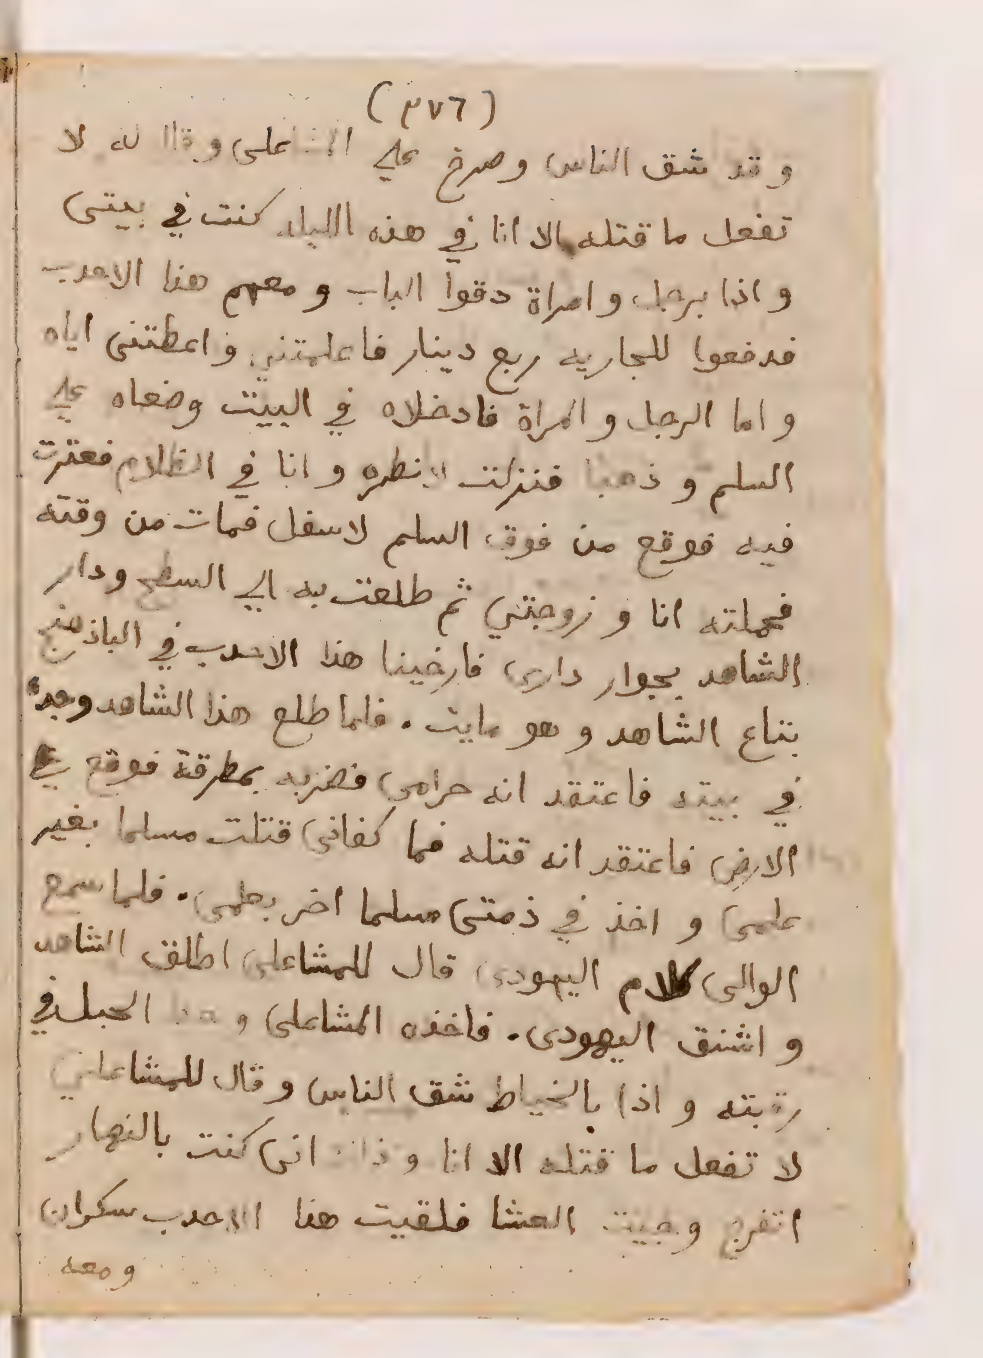 (٣٧٦)
و قد شق الناس وصرخ علي المشاعلى وقال له لا
تفعل ما قتله الا انا في هذه الليله كنت في بيتى
و اذا برجل و امراة دقوا الباب و معهم هذا الاحدب
فدفعوا للجاريه ربع دينار فاعلمتني و اعطتنى اياه
و اما الرجل و المراة فادخلاه في البيت وضعاه علي
السلم و ذهبا فنزلت لانظره و انا في الظلام فعترت
فيه فوقع من فوق السلم لاسفل فمات من وقته
فحملته انا و زوجتي ثم طلعت به الي السطح ودار
الشاهد بجوار دارى فارخينا هذا الاحدب في الباذهنج
بتاع الشاهد و هو مايت . فلما طلع هذا الشاهد وجده
في بيته فاعتقد انه حرامى فضربه بمطرقة فوقع علي
الارض فاعتقد انه قتله فما كفانى قتلت مسلما بغير
علمى و اخذ في ذمتى مسلما اخر بعلمى . فلما سمع
الوالى كلام اليهودى قال للمشاعلى اطلق الشاهد
و اشنق اليهودى . فاخذه المشاعلى و حط الحبل في
رقبته و اذا بالخياط شق الناس و قال للمشاعلي
لا تفعل ما قتله الا انا و ذلك انى كنت بالنهار
اتفرج وجيت العشا فلقيت هذا الاحدب سكران
ومعه